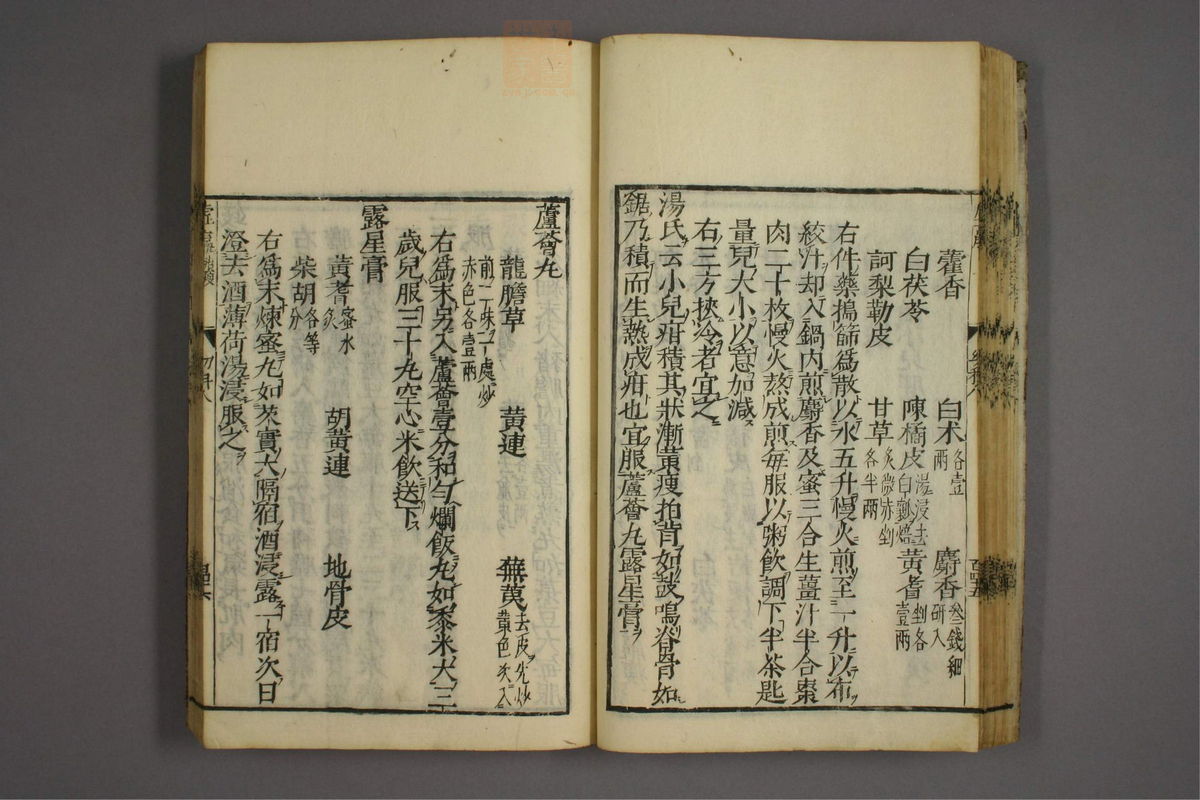 藿香 白朮各壹兩 麝香叁錢細研入
白茯苓 陳橘皮湯浸去白瓤焙 黃耆剉各壹兩
訶梨勒皮 甘草炙微赤剉各半兩
右件藥搗篩爲散以水五升慢火煎至一升以布
絞汁却入鍋內煎麝香及蜜三合生薑汁半合棗
肉二十枚慢火熬成煎每服以粥飲調下半茶匙
量兒大小以意加減
右三方挾冷者宜之
湯氏云小兒疳積其狀漸黃瘦拍背如鼓鳴脊骨如
鋸乃積而生熱成疳也宜服蘆薈丸露星膏
蘆薈丸
龍膽草 黃連 蕪荑去皮先炒黃色次入前二味一處炒赤色各壹兩
右爲末另入蘆薈壹分和勻爛飯丸如黍米大三
歲兒服三十丸空心米飲送下
露星膏
黃耆蜜水炙 胡黃連 地骨皮
柴胡各等分
右爲末煉蜜丸如芡實大隔宿酒浸露一宿次日
澄去酒薄荷湯浸服之